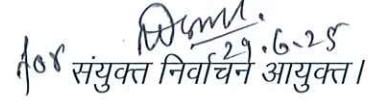 29.6.25
for संयुक्त निर्वाचन आयुक्त।